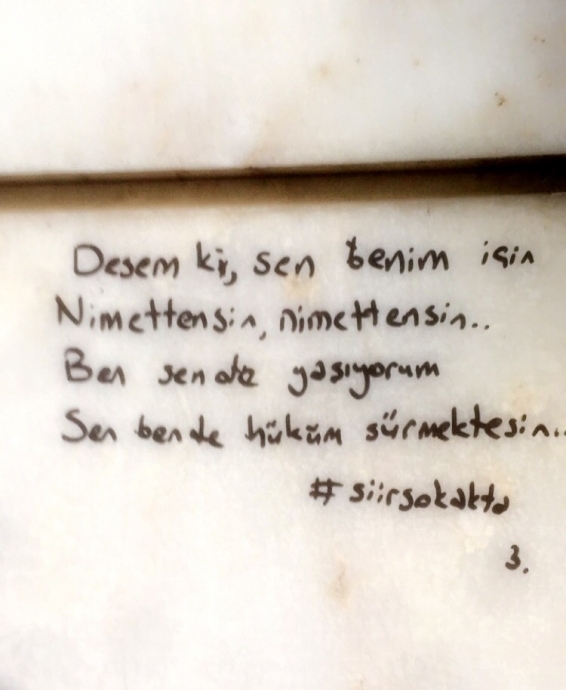 Desem ki, sen benim için
Nimettensin, nimettensin..
Ben sende yaşıyorum
Sen bende hüküm sürmektesin..
#siirsokakta
3.